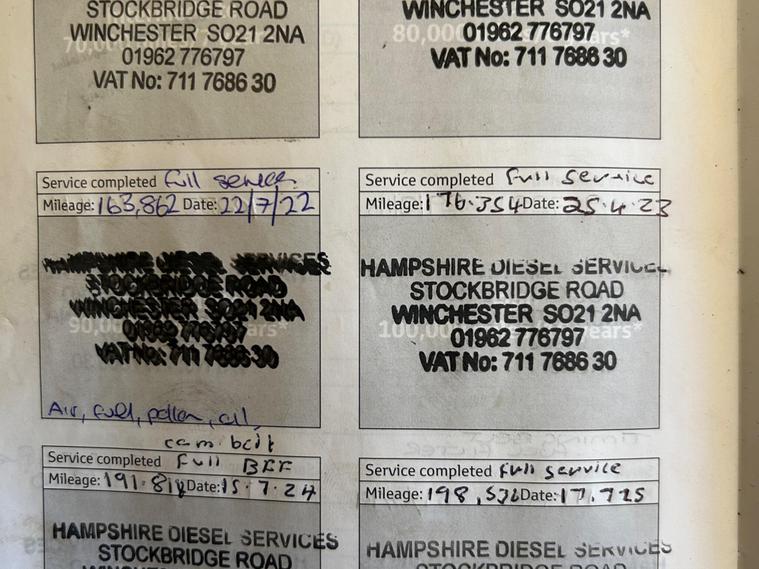 STOCKBRIDGE ROAD
WINCHESTER SO21 2NA
01962 776797
VAT No: 711 7686 30
WINCHESTER SO21 2NA
01962 776797
VAT No: 711 7686 30
Service completed full service
Mileage: 163,862 Date: 22/7/22
HAMPSHIRE DIESEL SERVICES
STOCKBRIDGE ROAD
WINCHESTER SO21 2NA
01962 776797
VAT No: 711 7686 30
Air, fuel, pollen, oil,
cam belt
Service completed full service
Mileage: 176.354 Date: 25.4.23
HAMPSHIRE DIESEL SERVICES
STOCKBRIDGE ROAD
WINCHESTER SO21 2NA
01962 776797
VAT No: 711 7686 30
Service completed Full
Mileage: Date: 15.7.24
HAMPSHIRE DIESEL SERVICES
STOCKBRIDGE ROAD
Service completed full service
Mileage: Date:
HAMPSHIRE DIESEL SERVICES
STOCKBRIDGE ROAD